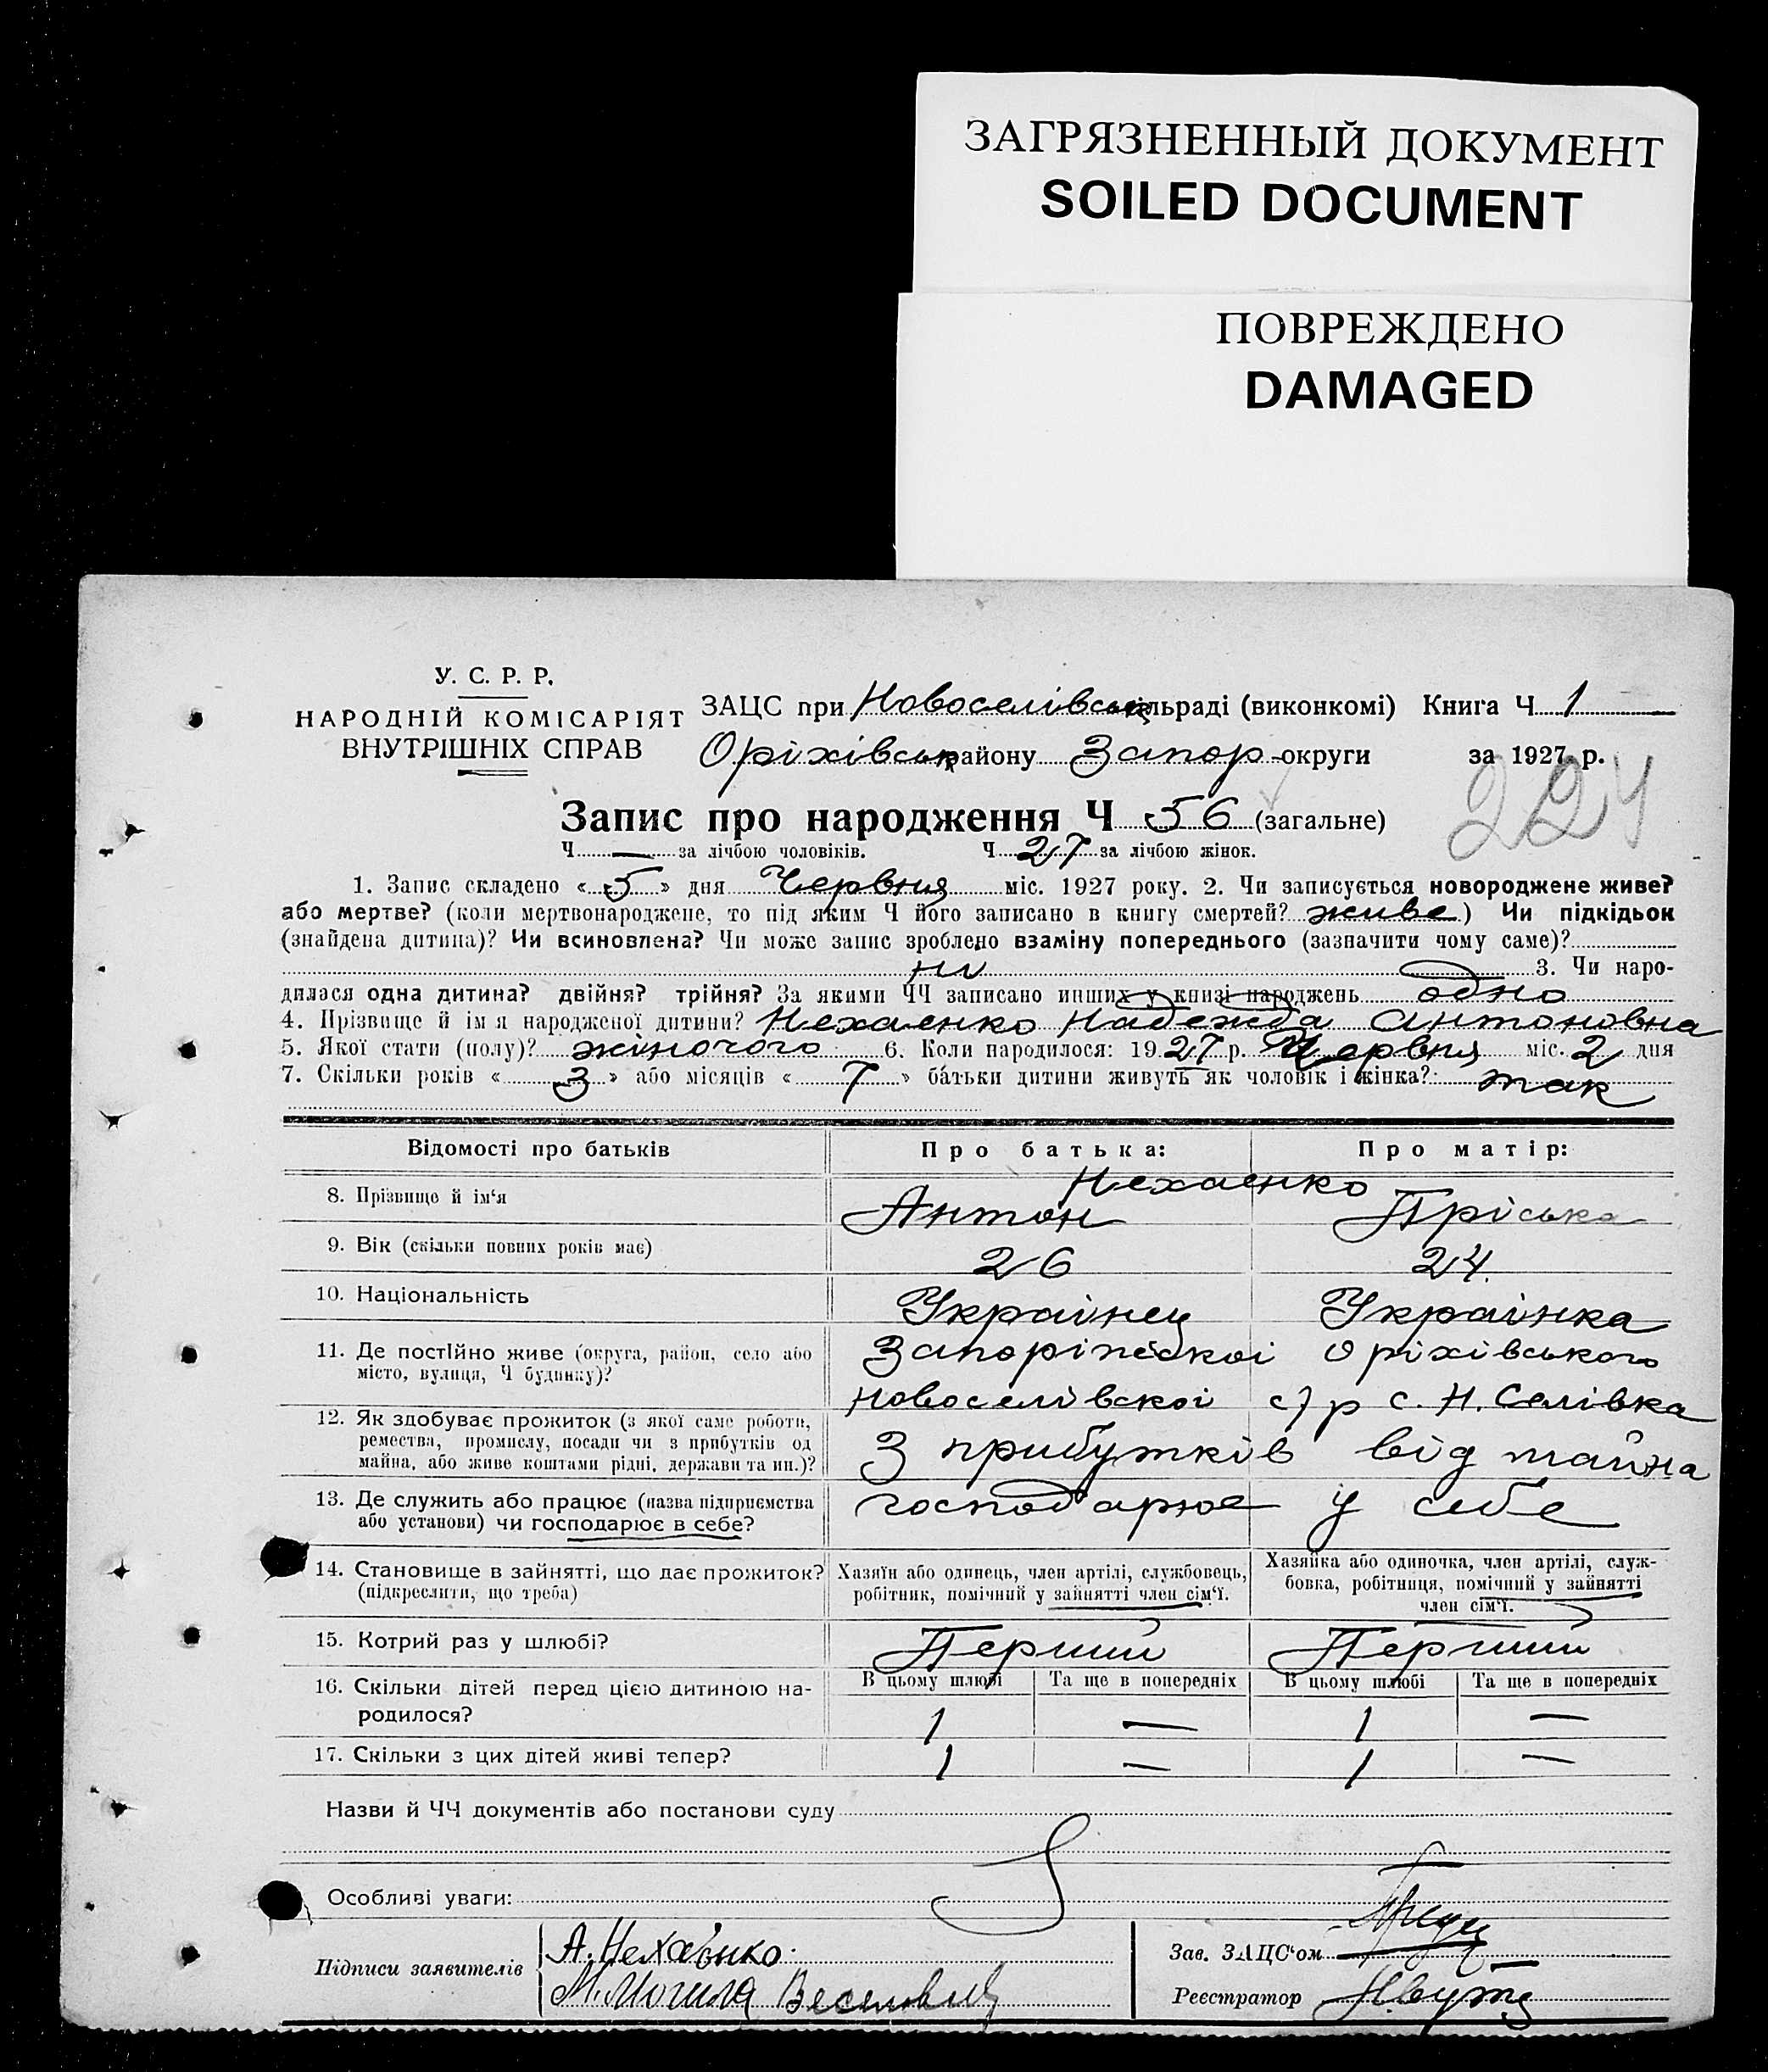 ЗАГРЯЗНЕННЫЙ ДОКУМЕНТ
SOILED DOCUMENT
ПОВРЕЖДЕНО
DAMAGED
У. С. Р. Р.
НАРОДНІЙ КОМІСАРІЯТ
ВНУТРІШНІХ СПРАВ
ЗАЦС при Новоселівськ сільраді (виконкомі) Книга Ч 1
Оріхівськ району Запор- округи за 1927 р.
224
Запис про народження Ч 56 (загальне)
Ч — за лічбою чоловіків. Ч 27 за лічбою жінок.
1. Запис складено « 5 » дня Червня міс. 1927 року. 2. Чи записується новороджене живе?
або мертве? (коли мертвонароджене, то під яким Ч його записано в книгу смертей? живе) Чи підкідьок
(знайдена дитина)? Чи всиновлена? Чи може запис зроблено взаміну попереднього (зазначити чому саме)?
ні 3. Чи наро-
дилася одна дитина? двійня? трійня? За якими ЧЧ записано инших у книзі народжень одно
4. Прізвище й ім'я народженої дитини? Нехаенко Надежда Антоновна
5. Якої стати (полу)? жіночого 6. Коли народилося: 1927 р. Червня міс. 2 дня
7. Скільки років « 3 » або місяців « 7 » батьки дитини живуть як чоловік і жінка? так
Відомості про батьків Про батька: Про матір:
Нехаенко
8. Прізвище й ім'я Антон Пріська
9. Вік (скільки повних років має) 26 24.
10. Національність Украінец Украінка
11. Де постійно живе (округа, район, село або Запоріпськоі Оріхівського
місто, вулиця, Ч будинку)? Новоселівскоі с/р с. Н. Селівка
12. Як здобуває прожиток (з якої саме роботи,
ремества, промислу, посади чи з прибутків од З прибутків від майна
майна, або живе коштами рідні, держави та ин.)?
13. Де служить або працює (назва підприємства господарює у себе
або установи) чи господарює в себе?
14. Становище в зайнятті, що дає прожиток? Хазяїн або одинець, член артілі, службовець, Хазяйка або одиночка, член артілі, служ-
(підкреслити, що треба) робітник, помічний у зайнятті член сім'ї. бовка, робітниця, помічний у зайнятті
член сім'ї.
15. Котрий раз у шлюбі? Перший Перший
16. Скільки дітей перед цією дитиною на- В цьому шлюбі Та ще в попередніх В цьому шлюбі Та ще в попередніх
родилося? 1 — 1 —
17. Скільки з цих дітей живі тепер? 1 — 1 —
Назви й ЧЧ документів або постанови суду
Особливі уваги:
Підписи заявителів А. Нехаєнко Зав. ЗАЦС'ом
М. Могила Реєстратор